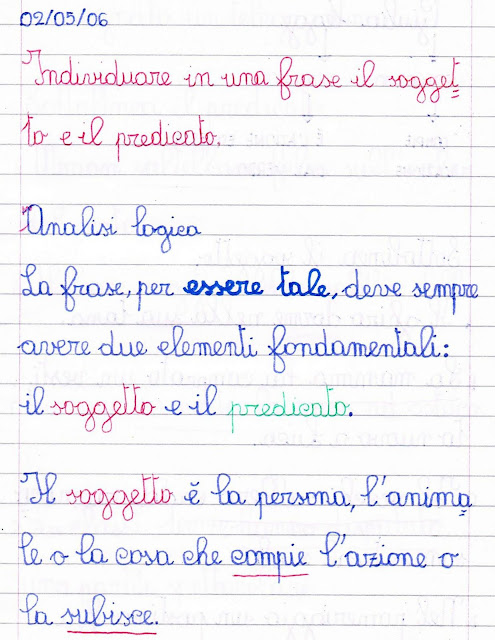 02/05/06
Individuare in una frase il sogget
to e il predicato.
Analisi logica
La frase, per essere tale, deve sempre
avere due elementi fondamentali:
il soggetto e il predicato.
Il soggetto è la persona, l'anima
le o la cosa che compie l'azione o
la subisce.